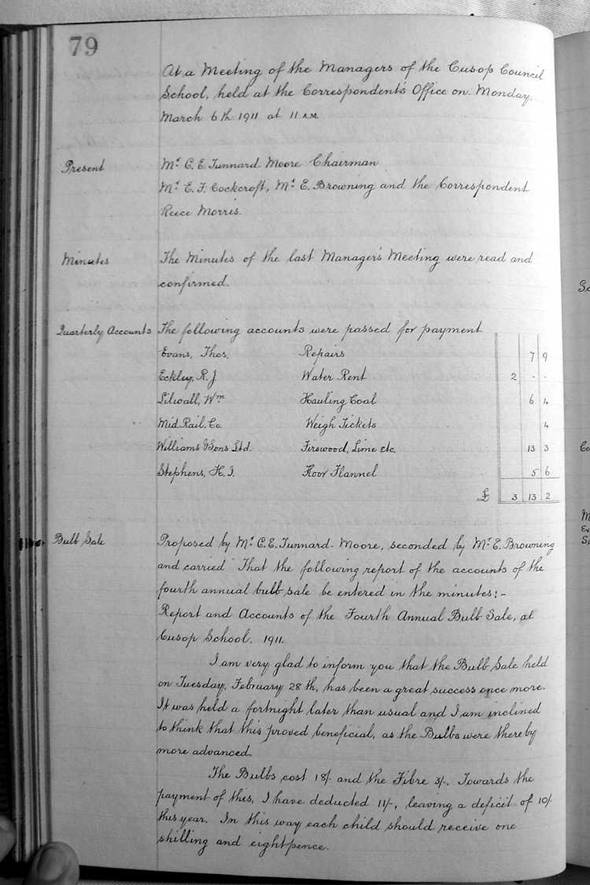 79
At a Meeting of the Managers of the Cusop Council
School, held at the Correspondent's Office on Monday,
March 6th 1911 at 11 A.M.
Present Mr C. E. Tunnard Moore Chairman
Mr E. F. Cockcroft, Mr E. Browning and the Correspondent
Reece Morris.
Minutes The Minutes of the last Manager's Meeting were read and
confirmed.
Quarterly Accounts The following accounts were passed for payment
Evans, Thos. Repairs 7 9
Eckley, R. J Water Rent 2 - -
Lilwall, Wm Hauling Coal 6 4
Mid. Rail. Co. Weigh Tickets 4
Williams & Sons Ltd. Firewood, Lime etc. 13 3
Stephens, H. J. Floor Flannel 5 6
£ 3 13 2
Bulb Sale Proposed by Mr C. E. Tunnard-Moore, seconded by Mr E. Browning
and carried That the following report of the accounts of the
fourth annual bulb sale be entered in the minutes:-
Report and Accounts of the Fourth Annual Bulb Sale, at
Cusop School. 1911.
I am very glad to inform you that the Bulb Sale held
on Tuesday, February 28th, has been a great success once more.
It was held a fortnight later than usual and I am inclined
to think that this proved beneficial, as the Bulbs were thereby
more advanced.
The Bulbs cost 18/- and the Fibre 3/-. Towards the
payment of this, I have deducted 11/-, leaving a deficit of 10/-
this year. In this way each child should receive one
shilling and eightpence.